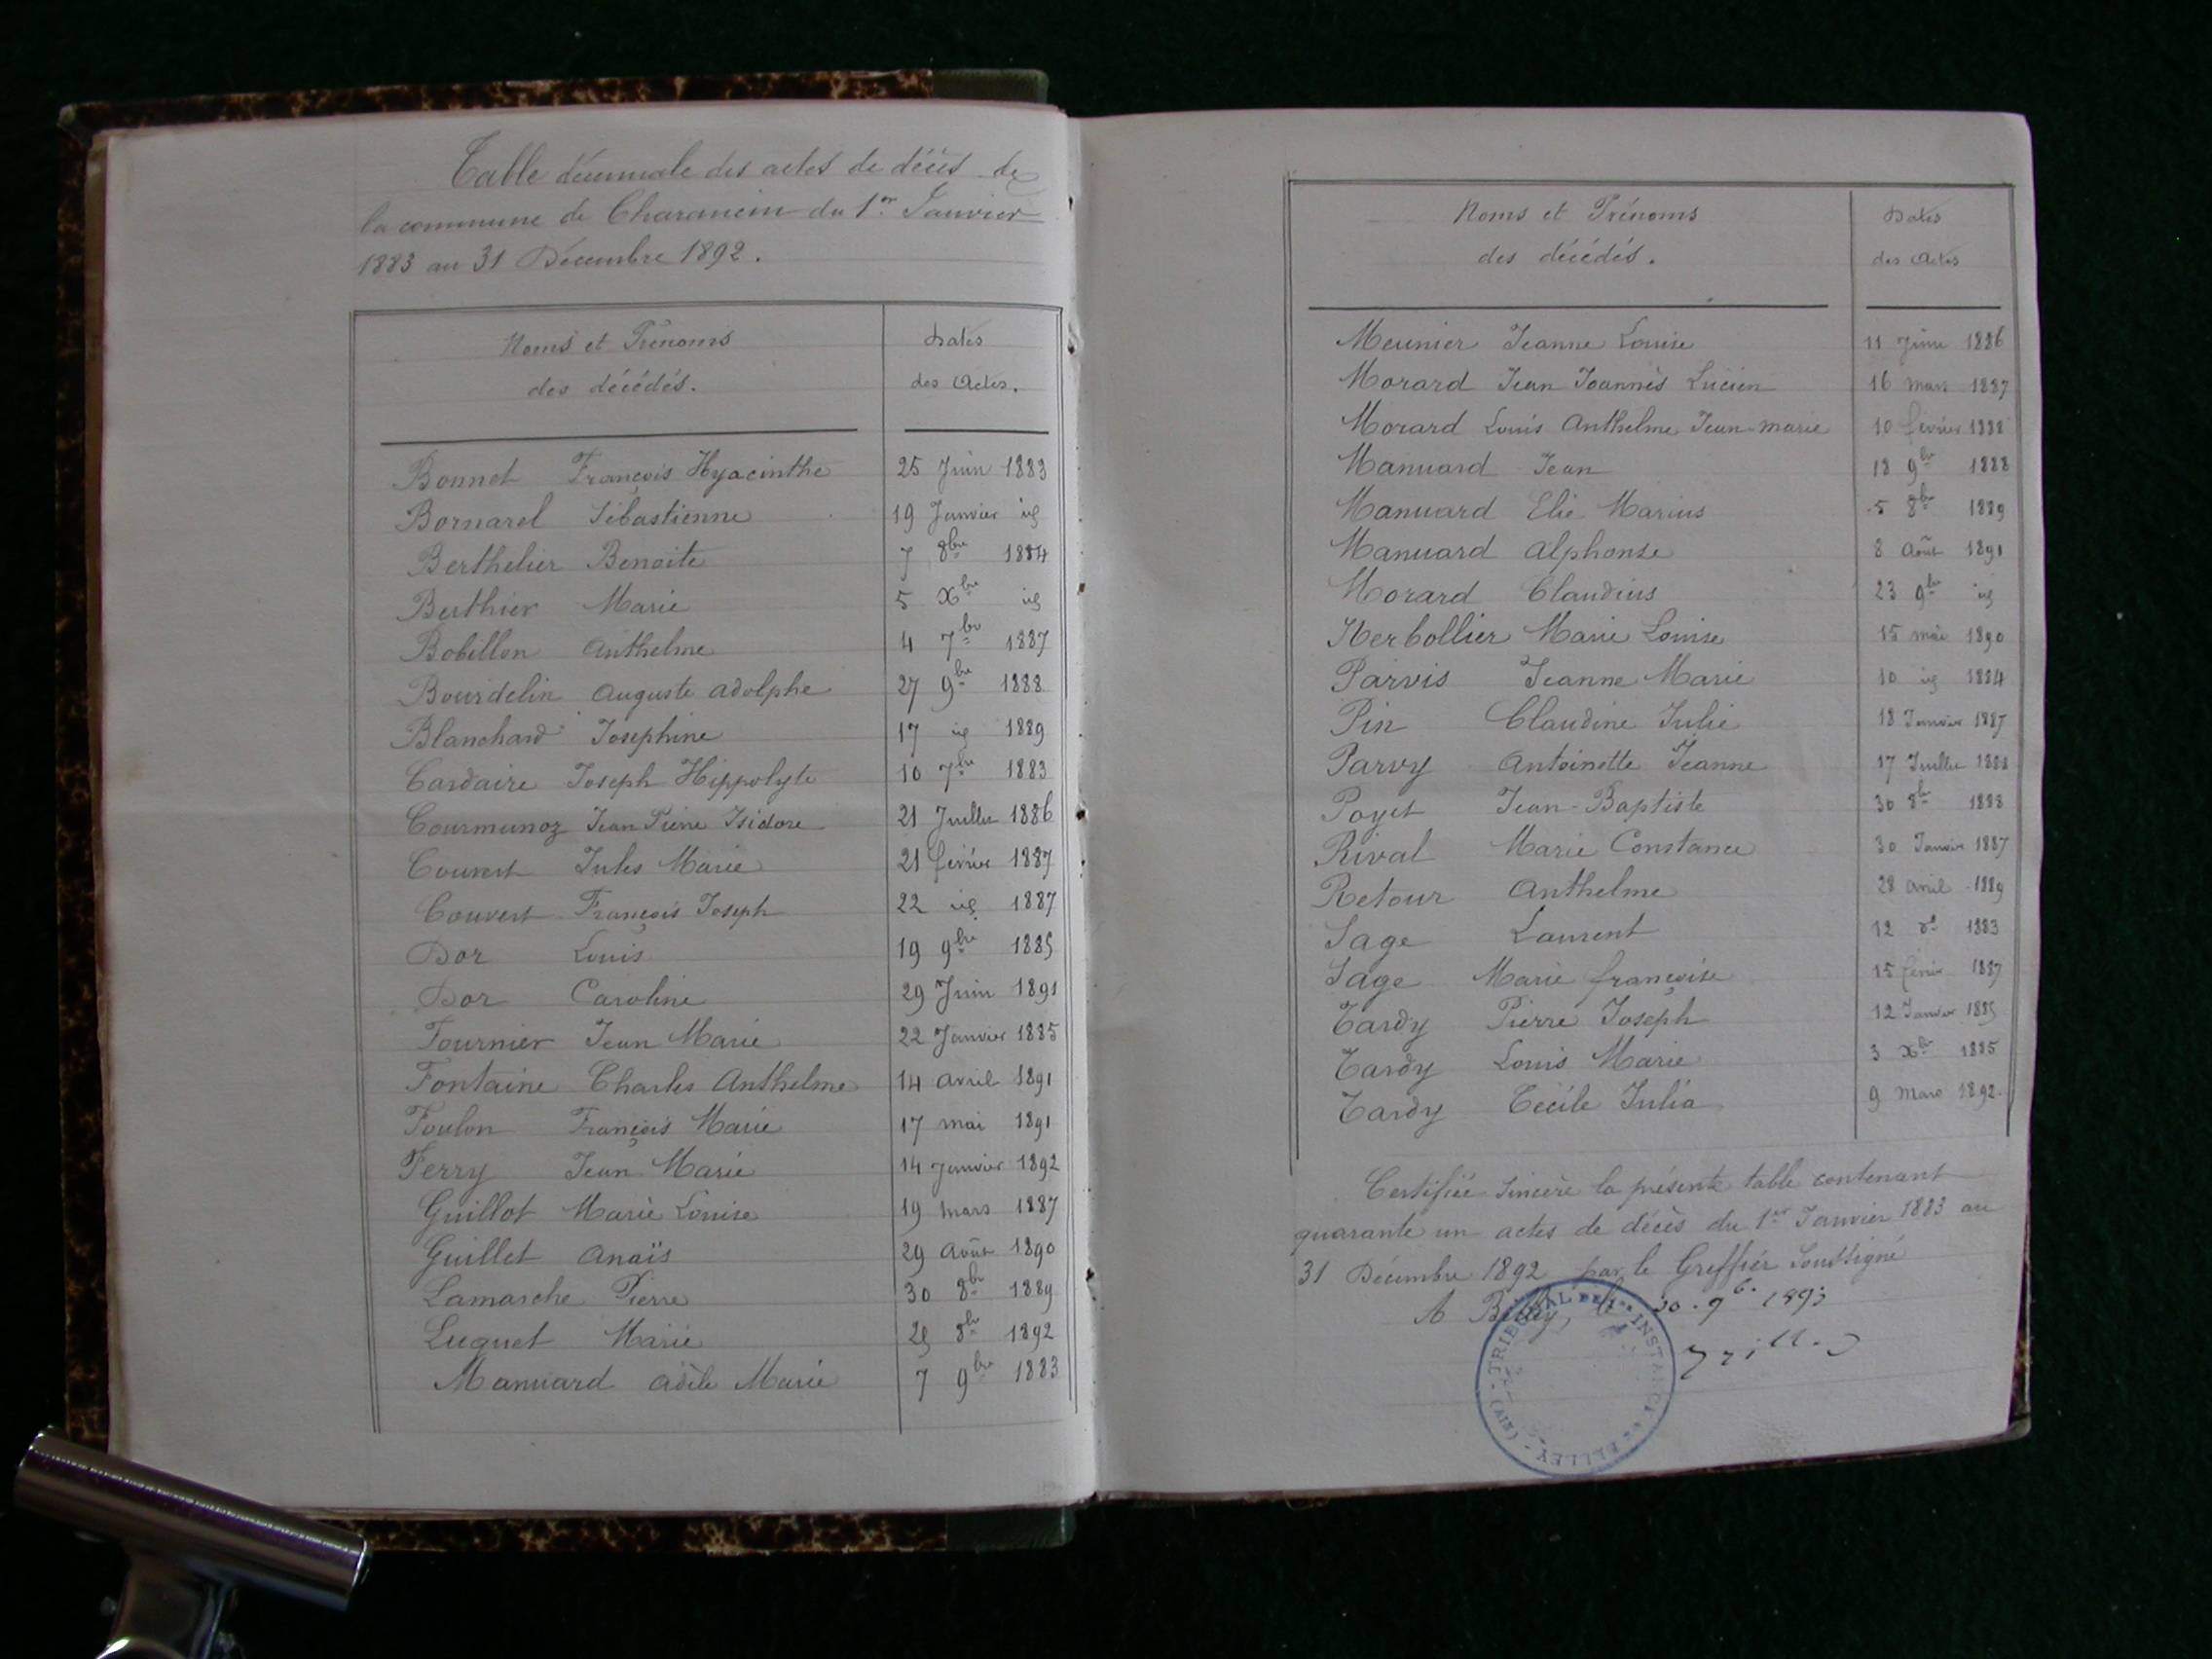 Table décennale des actes de décès de
la commune de Charancin du 1er Janvier
1883 au 31 Décembre 1892.
Noms et Prénoms Dates
des décédés. des Actes.
Bonnet François Hyacinthe 25 Juin 1883
Bornarel Sébastienne 19 Janvier id
Berthelier Benoite 7 8bre 1884
Berthier Marie 5 Xbre id
Bobillon Anthelme 4 7bre 1887
Bourdelin Auguste Adolphe 27 9bre 1888
Blanchard Josephine 17 id 1889
Cardaire Joseph Hippolyte 10 7bre 1883
Courmunoz Jean Pierre Isidore 21 Juillet 1886
Couvert Jules Marie 21 février 1887
Couvert François Joseph 22 id 1887
Dor Louis 19 9bre 1885
Dor Caroline 29 Juin 1891
Fournier Jean Marie 22 Janvier 1885
Fontaine Charles Anthelme 14 avril 1891
Foulon François Marie 17 mai 1891
Ferry Jean Marie 14 Janvier 1892
Guillot Marie Louise 19 mars 1887
Guillet Anaïs 29 Août 1890
Lamarche Pierre 30 8bre 1889
Luquet Marie 8bre 1892
Manuard Adèle Marie 7 9bre 1883
Noms et Prénoms Dates
des décédés. des Actes
Meunier Jeanne Louise 11 Juin 1886
Morard Jean Joannès Lucien 16 mars 1887
Morard Louis Anthelme Jean-marie 10 février 1888
Manuard Jean 18 9bre 1888
Manuard Elie Marius 5 8bre 1889
Manuard Alphonse 8 Août 1891
Morard Claudius 23 9bre id
Nerbollier Marie Louise 15 mai 1890
Parvis Jeanne Marie 10 id 1884
Pin Claudine Julie 18 Janvier 1887
Parvy Antoinette Jeanne 17 Juillet 1888
Poyet Jean-Baptiste 30 8bre 1888
Rival Marie Constance 30 Janvier 1887
Retour Anthelme 28 avril 1889
Sage Laurent 12 1883
Sage Marie françoise 15 février 1887
Tardy Pierre Joseph 12 Janvier 1885
Tardy Louis Marie 3 Xbre 1885
Tardy Cécile Julia 9 Mars 1892.
Certifiée sincère la présente table contenant
quarante un actes de décès du 1er Janvier 1883 au
31 Décembre 1892 par le Greffier soussigné
A Belley, le 20. 9b. 1893
TRIBUNAL DE 1re INSTANCE DE BELLEY (AIN)